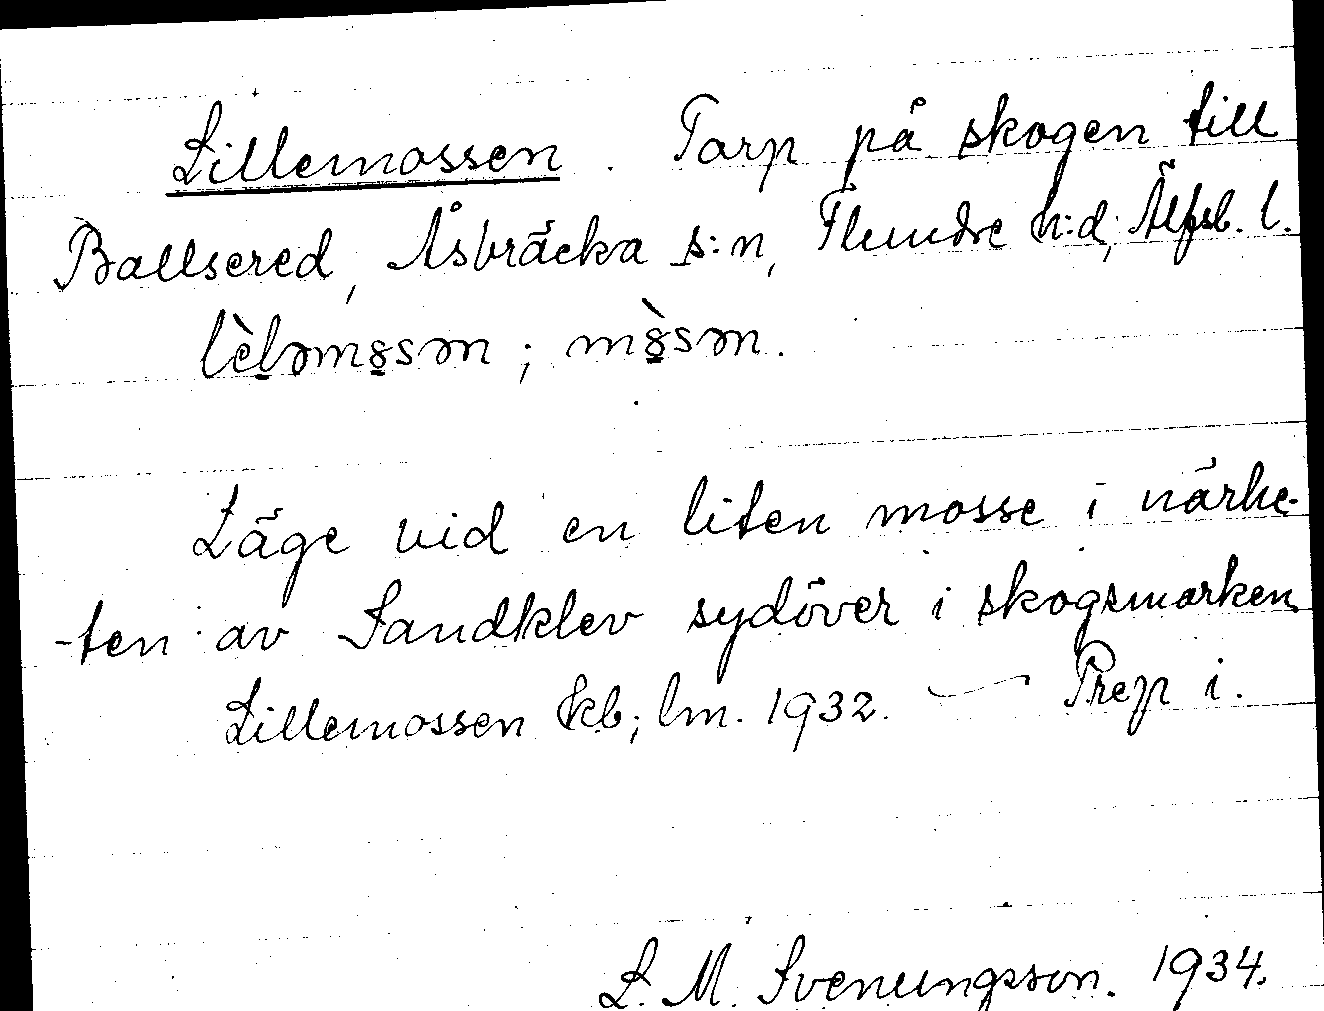 Lillemossen. Torp på skogen till
Ballsered, Åsbräcka s:n, Flundre h:d, Älfsb. l.
lèləmꞩsən; mꞩ̀sən.
Läge vid en liten mosse i närhe-
-ten av Sandklev sydöver i skogsmarken
Lillemossen Ekb; lm. 1932. — Prep i.
L. M. Svenungsson. 1934.